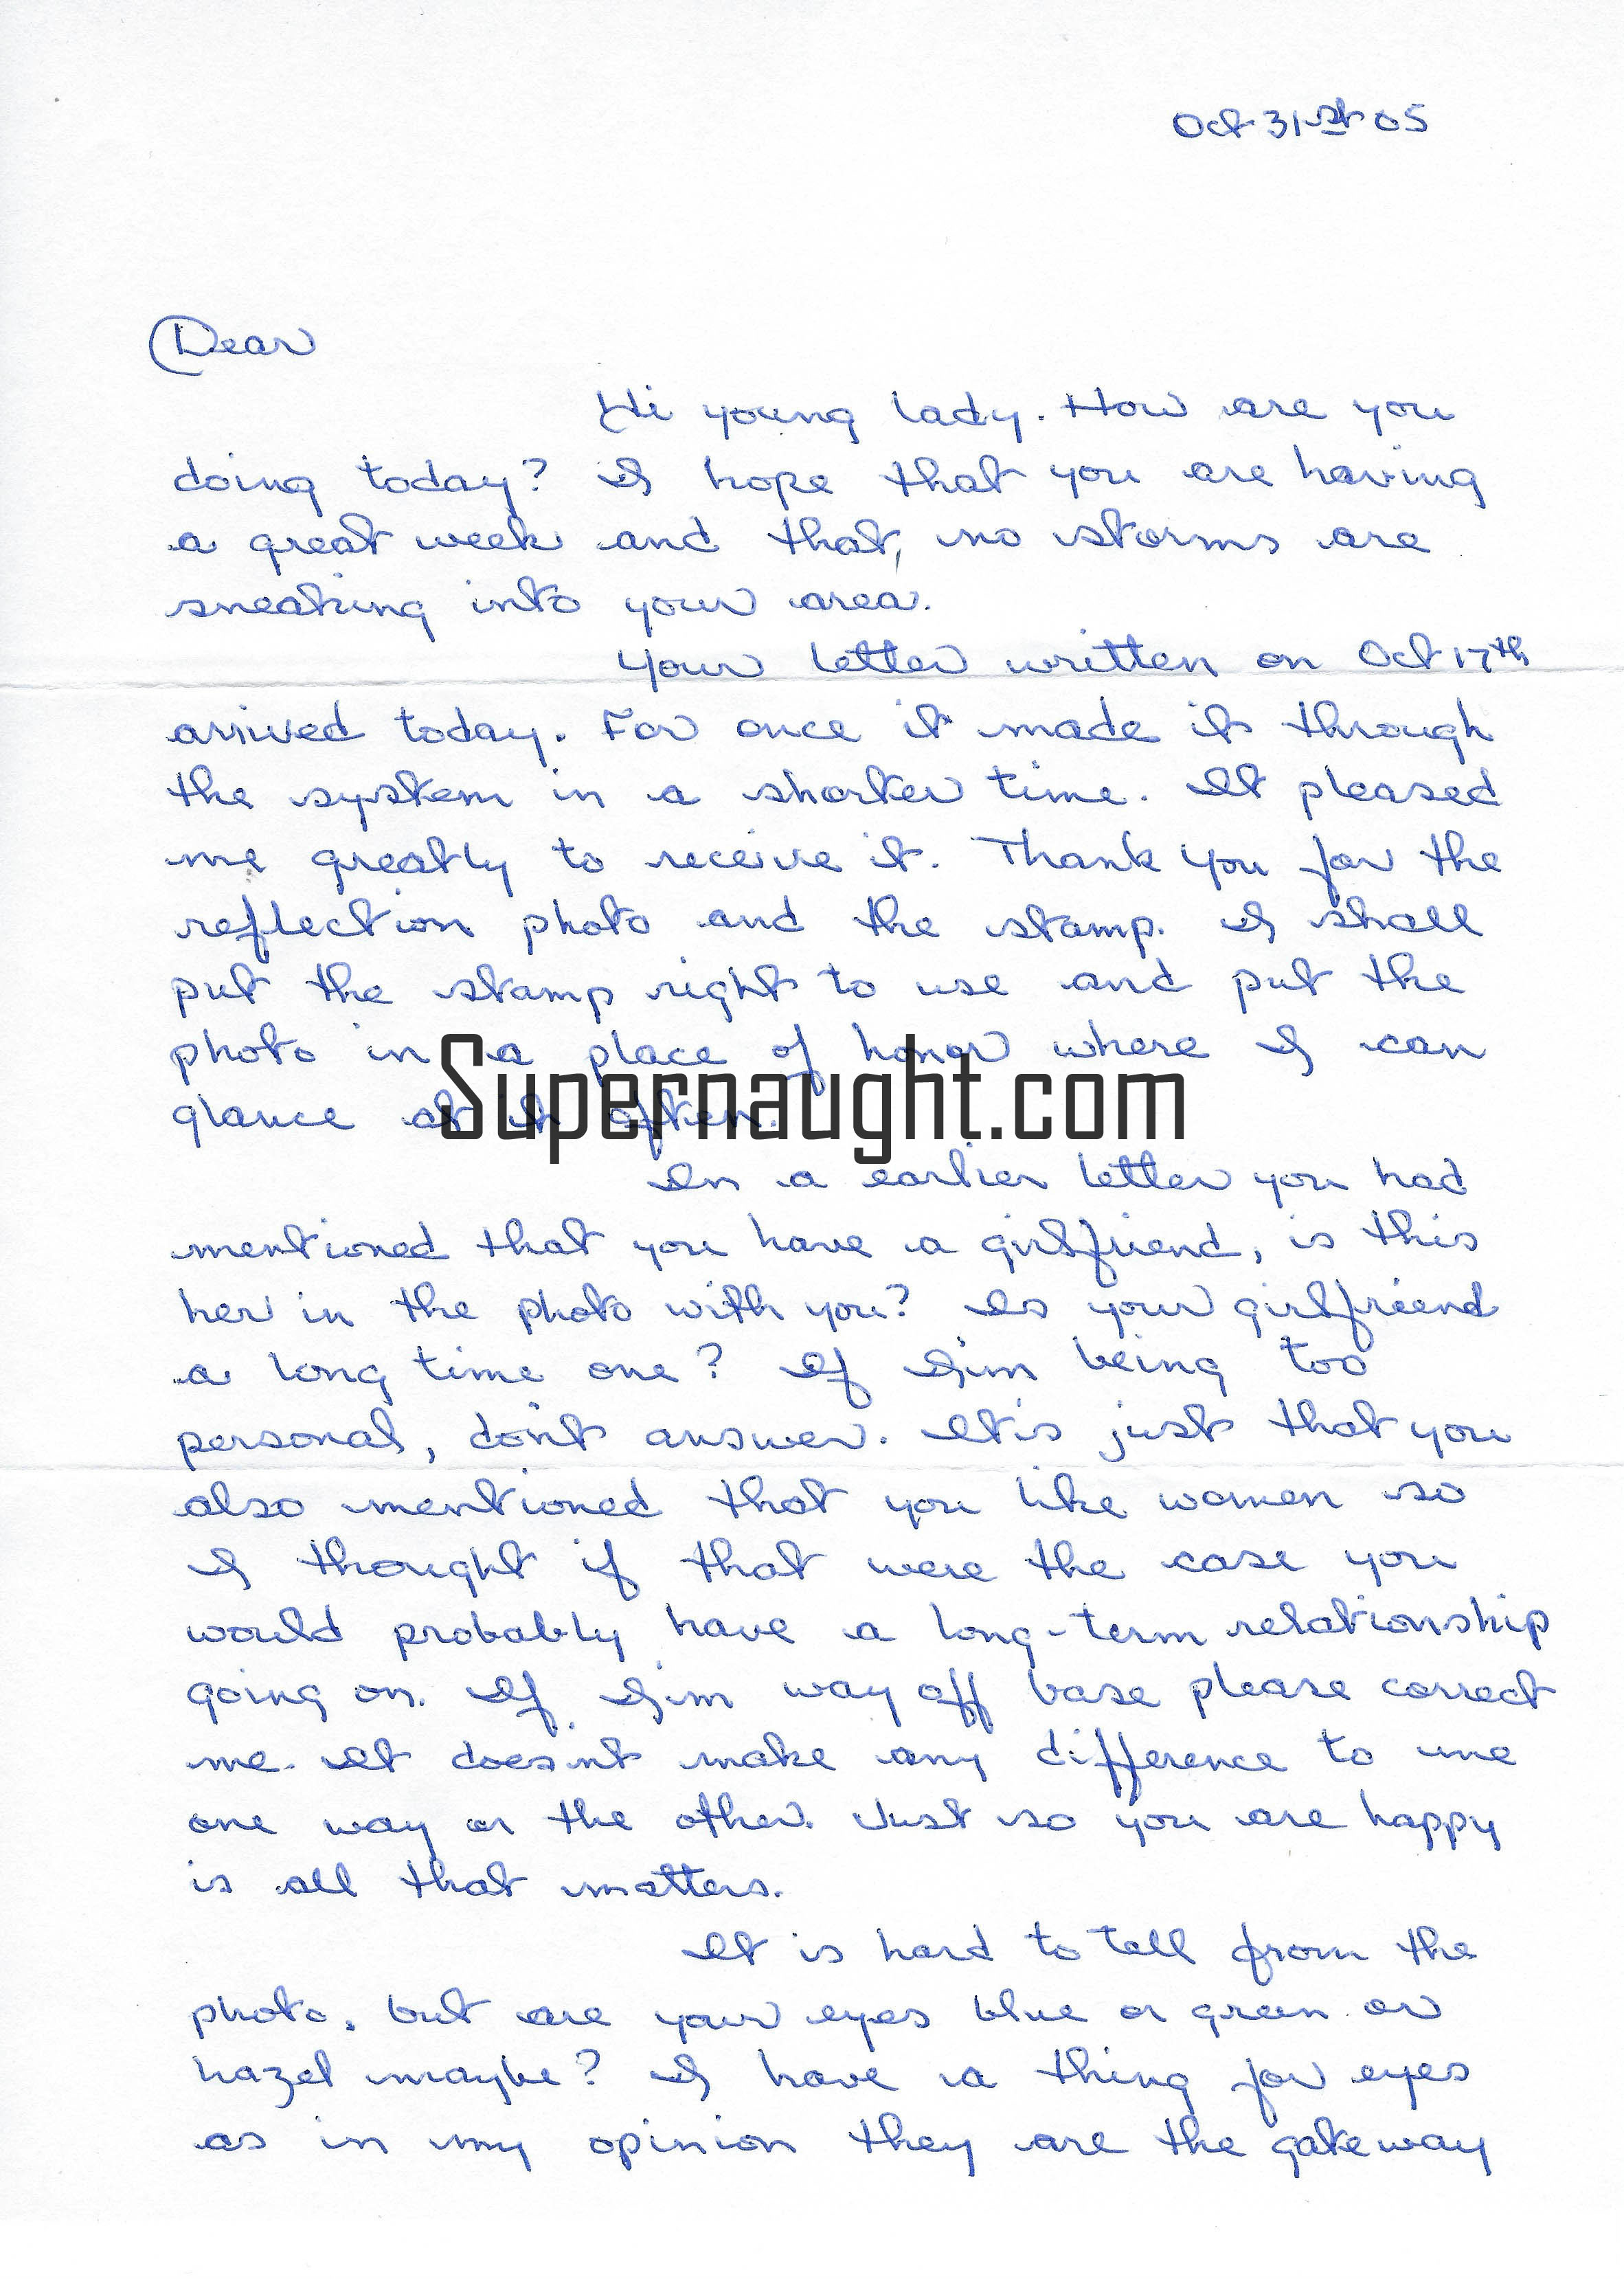 Oct 31st 05
Dear
Hi young lady. How are you
doing today? I hope that you are having
a great week and that, no storms are
sneaking into your area.
Your letter written on Oct 17th
arrived today. For once it made it through
the system in a shorter time. It pleased
me greatly to receive it. Thank you for the
reflection photo and the stamp. I shall
put the stamp right to use and put the
photo in a place of honor where I can
Supernaught.com
glance at it often.
In a earlier letter you had
mentioned that you have a girlfriend, is this
her in the photo with you? Is your girlfriend
a long time one? If I'm being too
personal, don't answer. It's just that you
also mentioned that you like women so
I thought if that were the case you
would probably have a long-term relationship
going on. If I'm way off base please correct
me. It doesn't make any difference to me
one way or the other. Just so you are happy
is all that matters.
It is hard to tell from the
photo, but are your eyes blue or green or
hazel maybe? I have a thing for eyes
as in my opinion they are the gateway